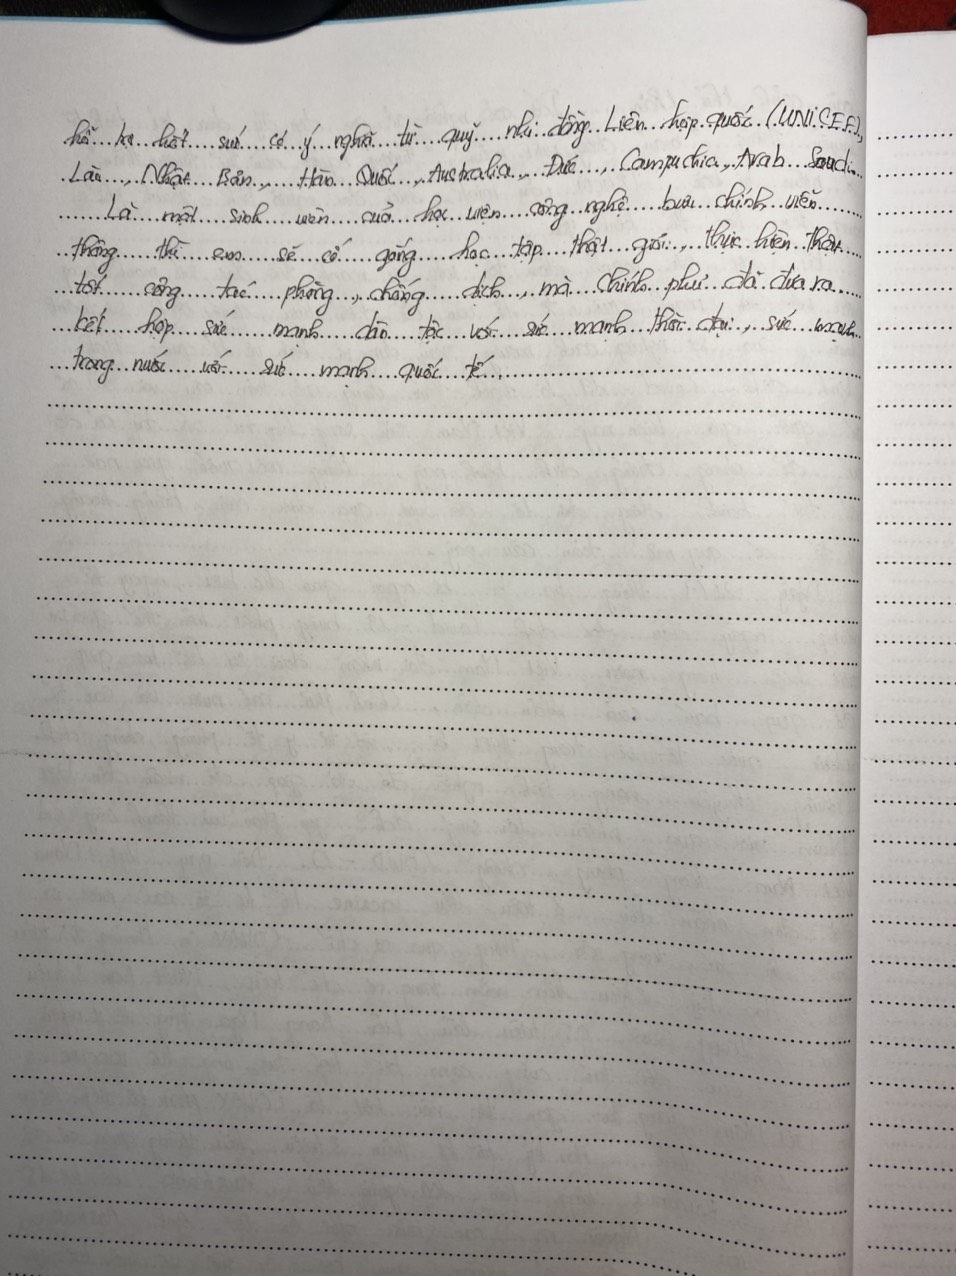 hết sức có ý nghĩa từ quỹ nhi đồng Liên hợp quốc (UNICEF),
Lào, Nhật Bản, Hàn Quốc, Australia, Đức, Campuchia, Arab Saudi.
Là một sinh viên của học viện công nghệ bưu chính viễn
thông thì em sẽ cố gắng học tập thật giỏi, thực hiện thật
tốt công tác phòng, chống dịch, mà chính phủ đã đưa ra
kết hợp sức mạnh dân tộc với sức mạnh thời đại, sức mạnh
trong nước với sức mạnh quốc tế.